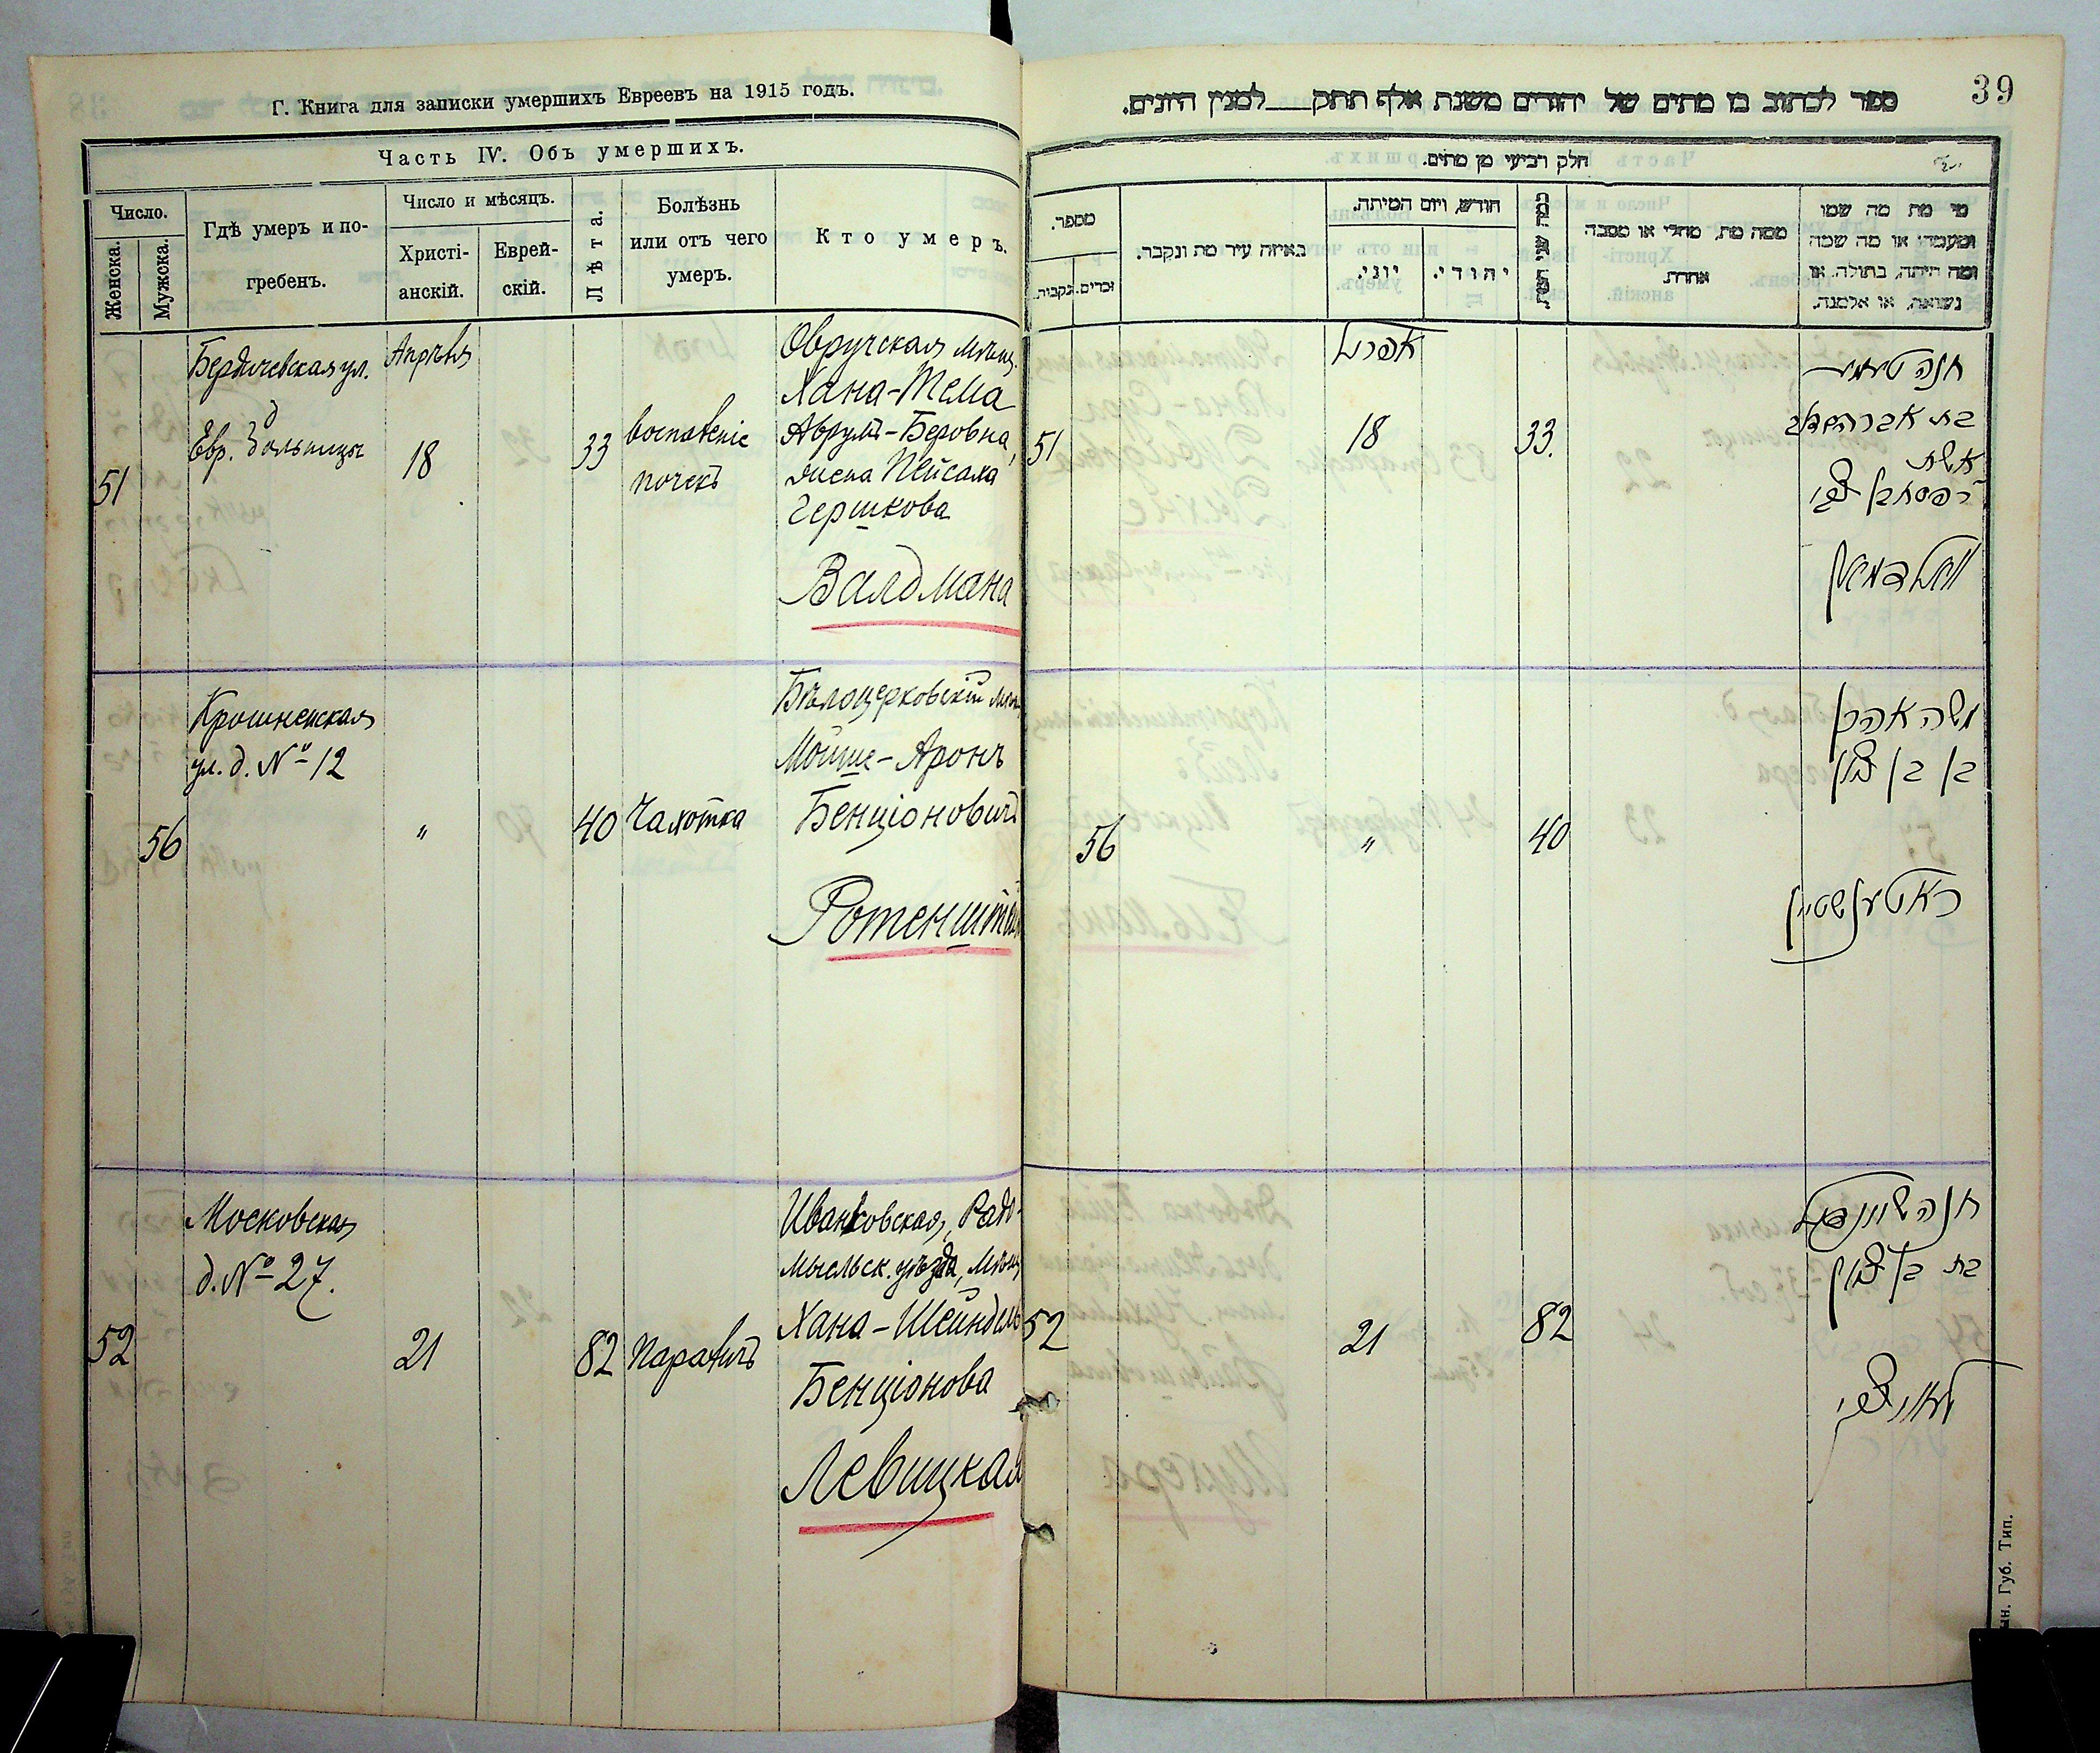 Г. Книга для записки умершихъ Евреевъ на 1915 годъ.
Часть IV. Объ умершихъ.
Число.
Женска.
Мужска.
Гдѣ умеръ и по-
гребенъ.
Число и мѣсяцъ.
Христі-
анскій.
Еврей-
скій.
Лѣта.
Болѣзнь
или отъ чего
умеръ.
Кто умеръ.
51
Бердичевская ул.
Евр. больница
Апрѣля
18
33
воспаленіе
почекъ
Овручская мѣщ.
Хана-Тема
Аврумъ-Беровна,
жена Пейсаха
Гершкова
Валдмана
56
Крошненская
ул. д. № 12
"
40
Чахотка
Бѣлоцерковскій мѣщ
Мойше-Аронъ
Бенціоновичъ
Ротенштейн
52
Московская
д. № 27.
21
82
Параличъ
Иванковская, Радо-
мысльск. уѣзда, мѣщ
Хана-Шейндель
Бенціонова
Левицкая
39
ספר לכתוב בו מתים של יהודים משנת אלף תתק___למנין היונים.
חלק רביעי מן מתים.
מספר.
נקבות.
זכרים.
באיזה עיר מת ונקבר.
חודש, ויום המיתה.
יוני.
יהודי.
כמה שני חיות.
ממה מת, מחלי או מסבה
אחרת.
מי מת מה שמו
ומעמדו או מה שמה
ומה היתה, בתולה, או
נשואה, או אלמנה.
51
אפריל
18
33.
חנה טעמע
בת אברהם בער
אשת
ר פסח בן צבי
וואלדמאן
56
"
40
משה אהרן
בן בן ציון
ראטענשטיין
52
21
82
חנה שיינדיל
בת בן ציון
לעוויצקי
ын. Губ. Тип.